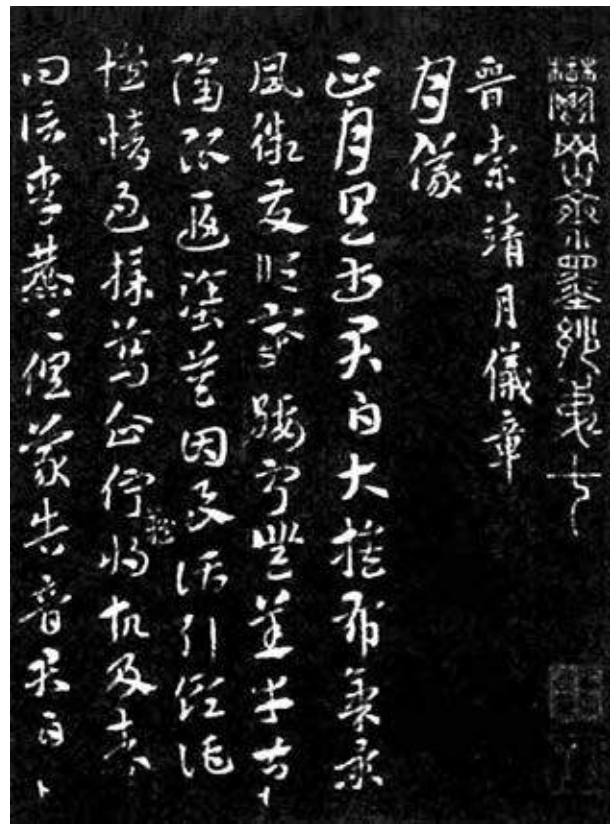 鬱岡齋墨妙第七
晉索靖月儀章
月儀
正月具書君白大蔟布氣景
風微發順變綏寧無恙幸甚
隔限遐塗莫因良話引領託
懷情過採葛企佇難將故及表
問信李麃俱蒙告音君白